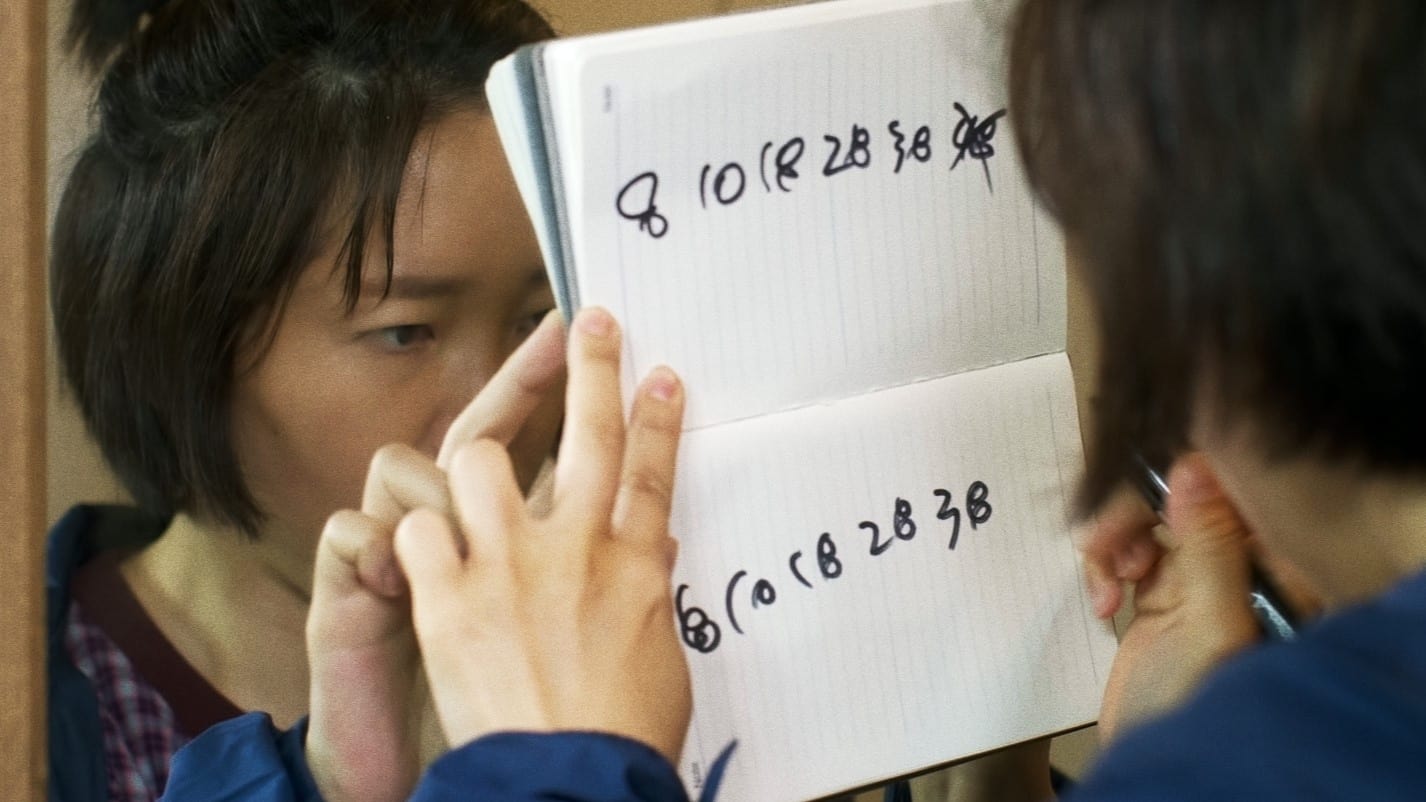 8 10 18 28 38
8 10 18 28 38